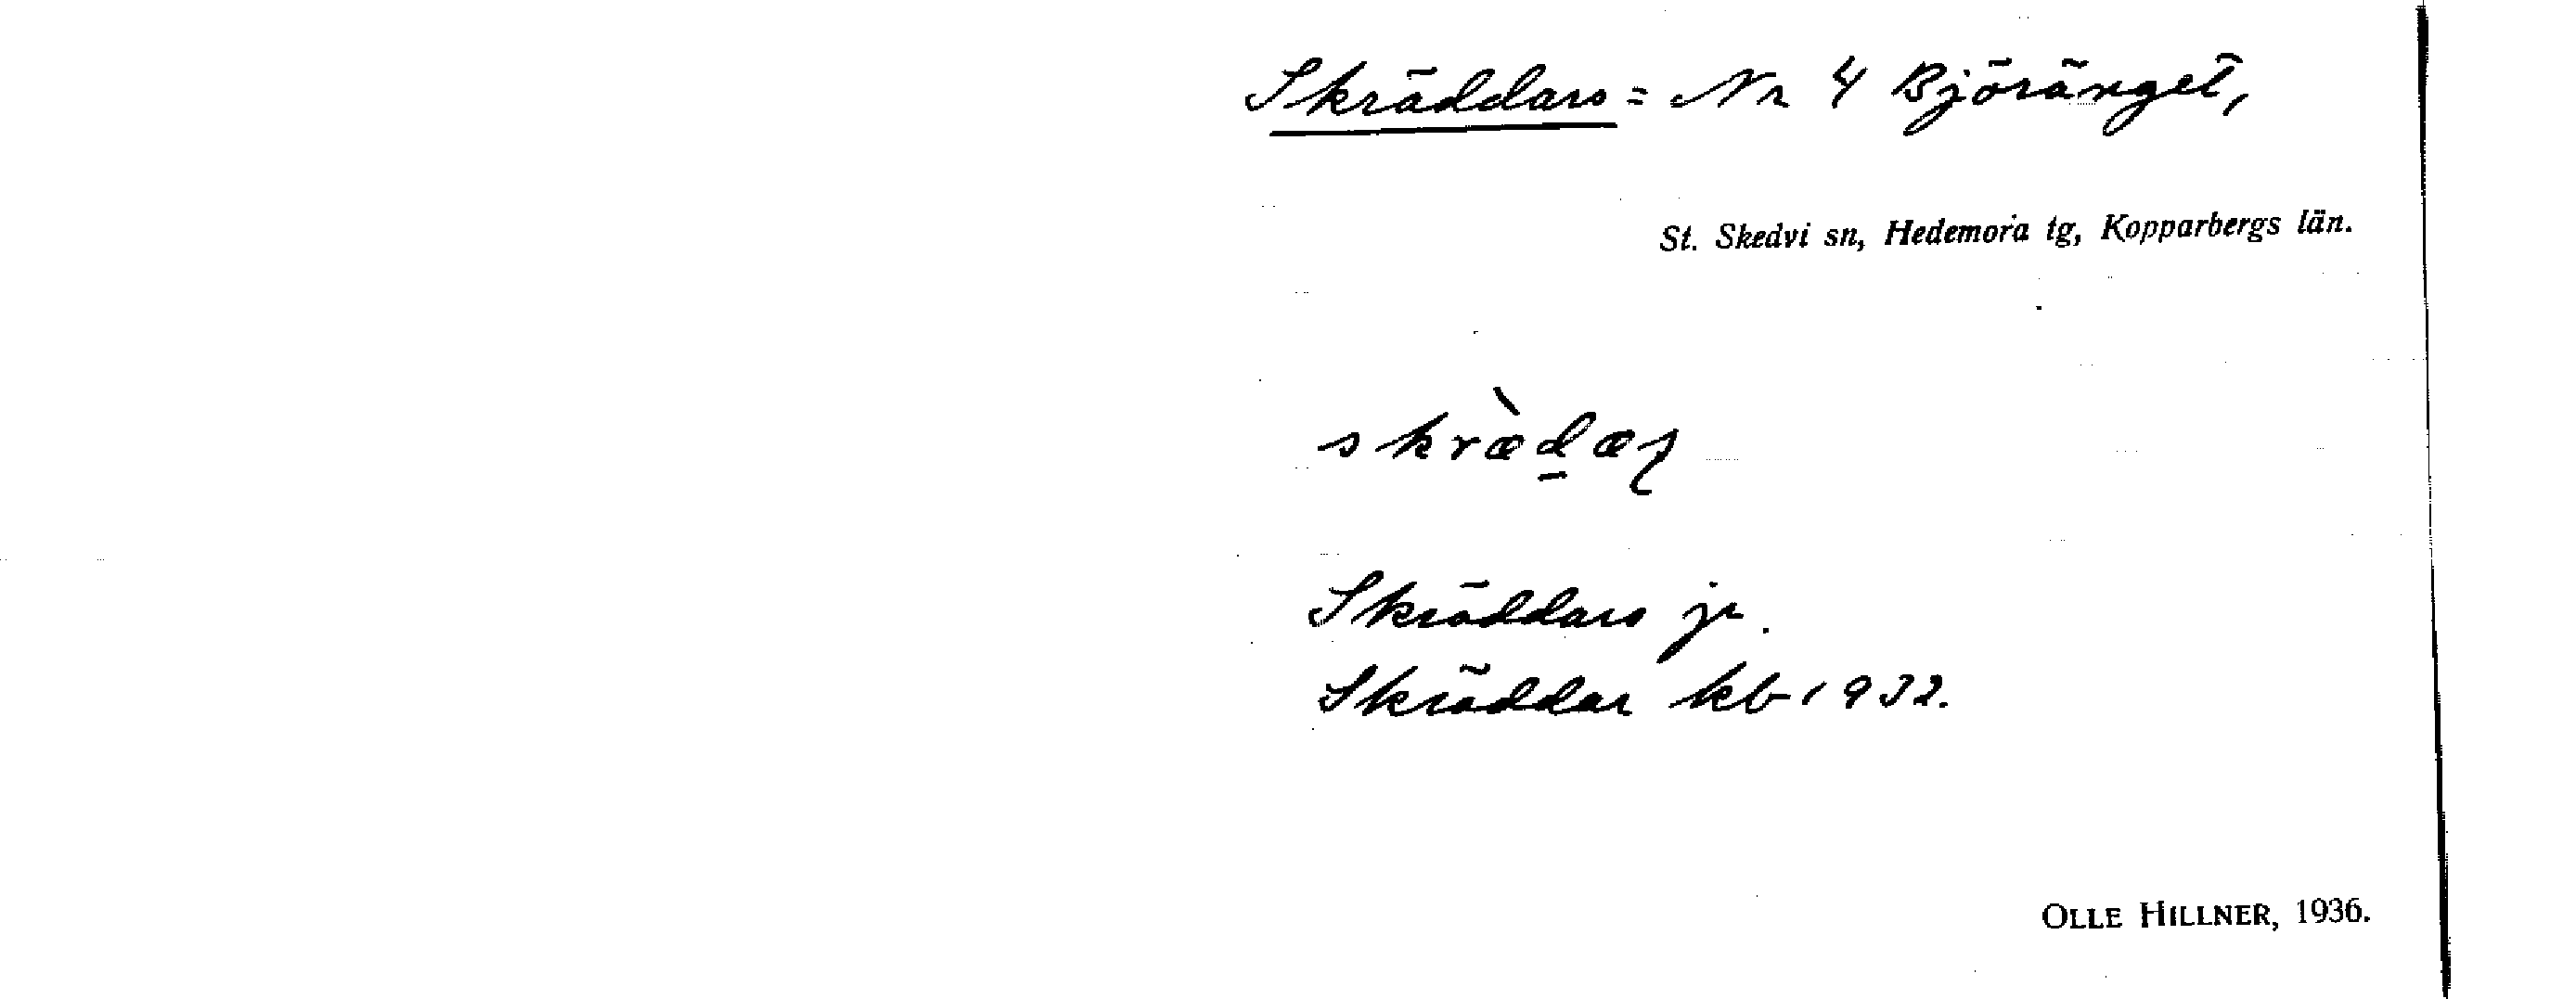 Skräddars = Nr 4 Björänget,
St. Skedvi sn, Hedemora tg, Kopparbergs län.
Skräddars jr.
Skräddar kb 1932.
OLLE HILLNER, 1936.